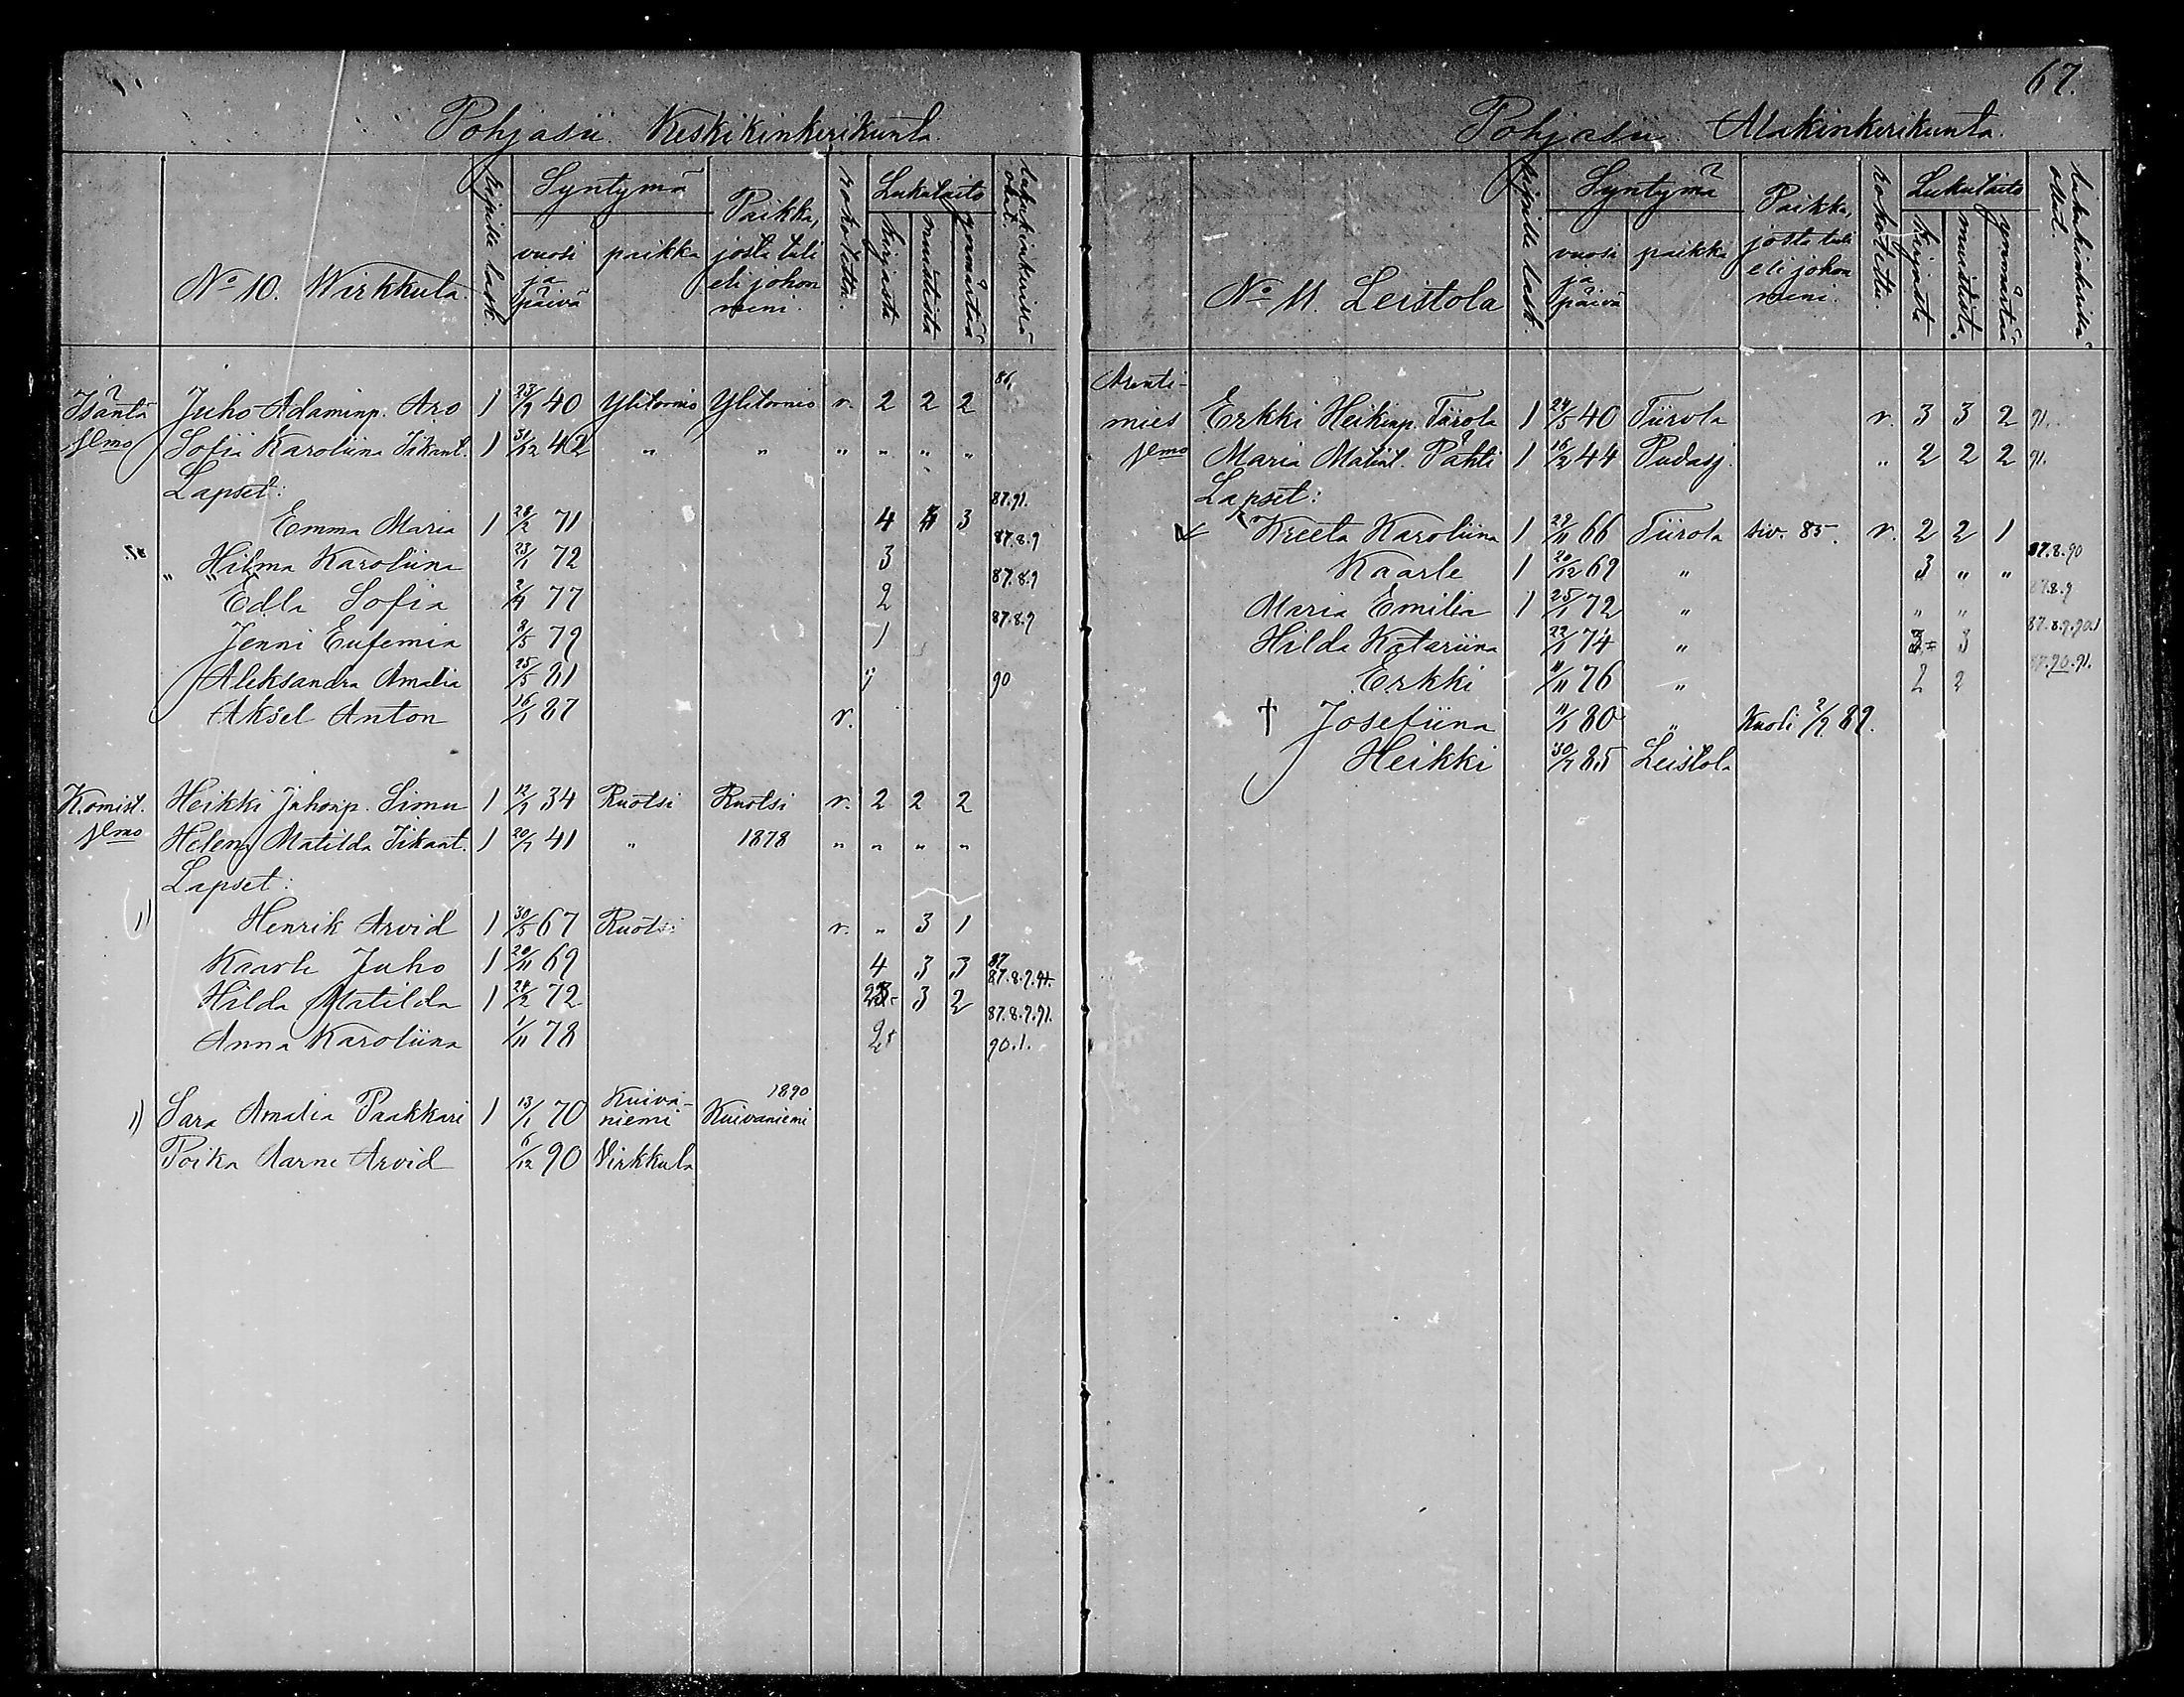 67.
Pohjasii Keskikinkerikunta.
No 10. Wirkkula. Ripille lask. Syntymä vuosi ja päivä paikka Paikka, josta tuli eli johon meni. rokotettu. Lukutaito kirjasta muistista ymmärtää lukukinkerissä ollut.
86.
Isäntä Juho Adaminp. Aro 1 23/9 40 Ylitornio Ylitornio r. 2 2 2
Vmo Sofia Karoliina Iikant. 1 31/12 42 " " " " " "
Lapset:
87.91.
Emma Maria 1 28/2 71 4 3
87.8.9
" Hilma Karoliina 23/1 72 3
87.8.9
Edla Sofia 77 2
87.8.9
Jenni Eufemia 8/5 79 1
Aleksandra Amalia 25/5 81 " 90
Aksel Anton 16/1 87 r.
Komist. Heikki Juhonp. Simu 1 12/9 34 Ruotsi Ruotsi r. 2 2 2
Vmo Helena Matilda Iikant. 1 20/7 41 " 1878 " " " "
Lapset:
1) Henrik Arvid 1 30/5 67 Ruotsi r. " 3 1
Kaarle Juho 1 20/11 69 4 3 3 87
87.8.9.91.
Hilda Matilda 1 24/2 72 3 2
87.8.9.91.
Anna Karoliina 1/11 78 2 90.1.
1) Sara Amalia Paakkari 1 13/1 70 Kuivaniemi 1890 Kuivaniemi
Poika Aarne Arvid 6/12 90 Virkkula
Pohjasii Alakinkerikunta.
No 11. Leistola Ripille lask. Syntymä vuosi ja päivä paikka Paikka, josta tuli eli johon meni. rokotettu. Lukutaito kirjasta muistista. ymmärtää lukukinkerissä ollut.
Arenti-
mies Erkki Heikinp. Tiirola 1 24/5 40 Tiirola r. 3 3 2 91.
Vmo Maria Matint. Pahti 1 16/2 44 Pudasj. " 2 2 2 91.
Lapset:
Kreeta Karoliina 1 29/11 66 Tiirola siv. 85. r. 2 2 1
87.8.90
Kaarle 1 20/12 69 " 3 " "
87.8.9
Maria Emilia 1 25/1 72 " " "
87.8.9.90.1
Hilda Katariina 22/1 74 " 3
87.90.91.
Erkki 11/11 76 " 2 2
† Josefiina 11/1 80 " Kuoli 2/9 89.
Heikki 30/7 85 Leistola